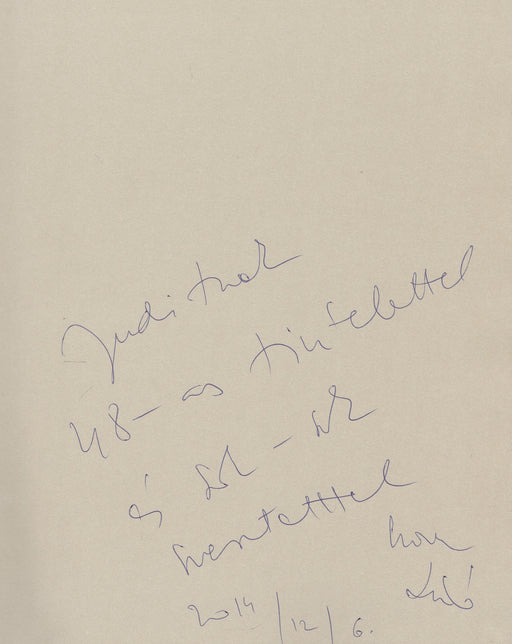 Juditnak
48-as tisztelettel
és sok-sok
szeretettel
2014/12/6.